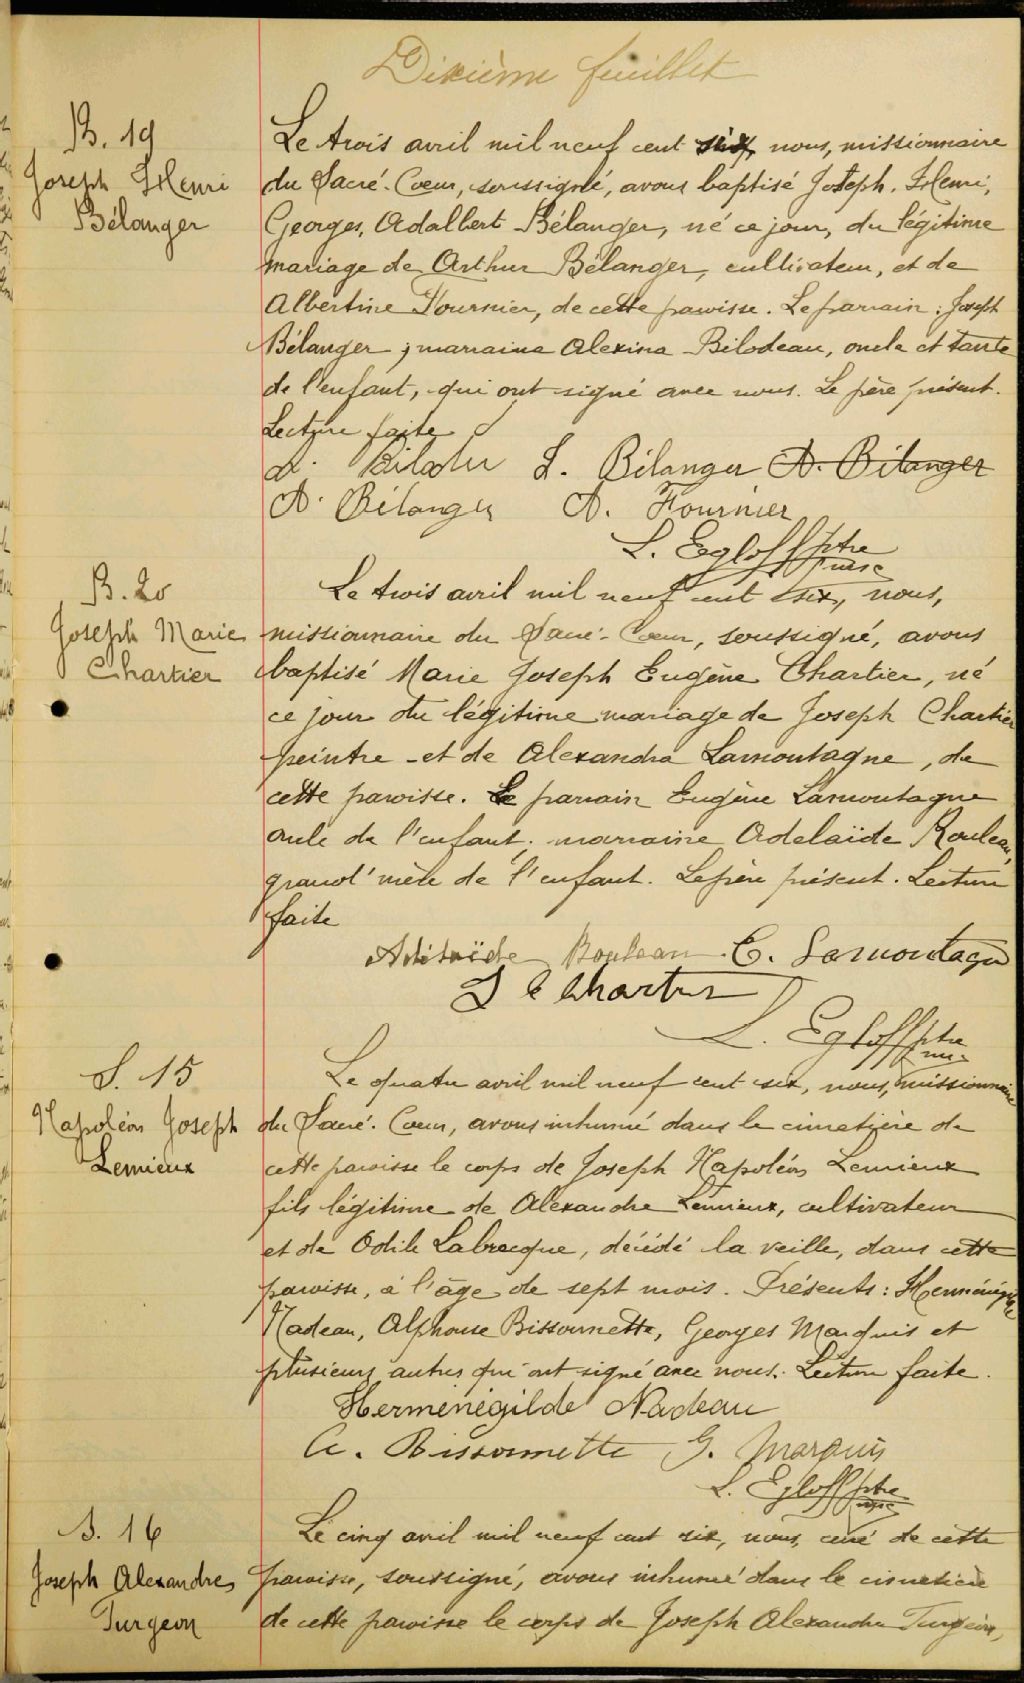 Dixième feuillet
B. 19
Joseph Henri
Bélanger
Le trois avril mil neuf cent six, nous, missionnaire
du Sacré-Coeur, soussigné, avons baptisé Joseph, Henri,
Georges, Adalbert Bélanger, né ce jour, du légitime
mariage de Arthur Bélanger, cultivateur, et de
Albertine Fournier, de cette paroisse. Le parrain : Joseph
Bélanger ; marraine Alexina Bilodeau, oncle et tante
de l'enfant, qui ont signé avec nous. Le père présent.
Lecture faite
J. Bélanger A. Bélanger
A. Bélanger A. Fournier
L. Egloff ptre
msc
B. 20
Joseph Marie
Chartier
Le trois avril mil neuf cent six, nous,
missionnaire du Sacré-Coeur, soussigné, avons
baptisé Marie Joseph Eugène Chartier, né
ce jour du légitime mariage de Joseph Chartier
peintre et de Alexandra Lamontagne, de
cette paroisse. Le parrain Eugène Lamontagne
oncle de l'enfant ; marraine Adelaïde Rouleau,
grand'mère de l'enfant. Le père présent. Lecture
faite
Adélaïde Rouleau E. Lamontagne
J E Chartier
L. Egloff ptre
msc
S. 15
Napoléon Joseph
Lemieux
Le quatre avril mil neuf cent six, nous, missionnaire
du Sacré-Coeur, avons inhumé dans le cimetière de
cette paroisse le corps de Joseph Napoléon Lemieux
fils légitime de Alexandre Lemieux, cultivateur
et de Odile Labrecque, décédé la veille, dans cette
paroisse, à l'âge de sept mois. Présents : Herménégilde
Nadeau, Alphonse Bissonnette, Georges Marquis et
plusieurs autres qui ont signé avec nous. Lecture faite.
Herménégilde Nadeau
A. Bissonnette G. Marquis
L. Egloff ptre
msc
S. 16
Joseph Alexandre
Turgeon
Le cinq avril mil neuf cent six, nous, curé de cette
paroisse, soussigné, avons inhumé dans le cimetière
de cette paroisse le corps de Joseph Alexandre Turgeon,